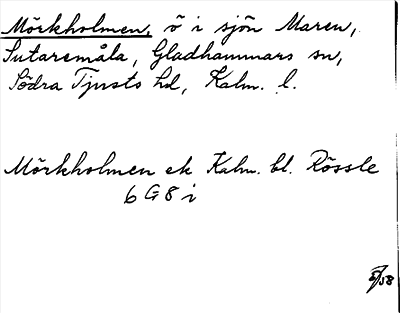 Mörkholmen, ö i sjön Maren,
Sutaremåla, Gladhammars sn,
Södra Tjusts hd, Kalm. l.
Mörkholmen ek Kalm. bl. Rössle
6 G 8 i